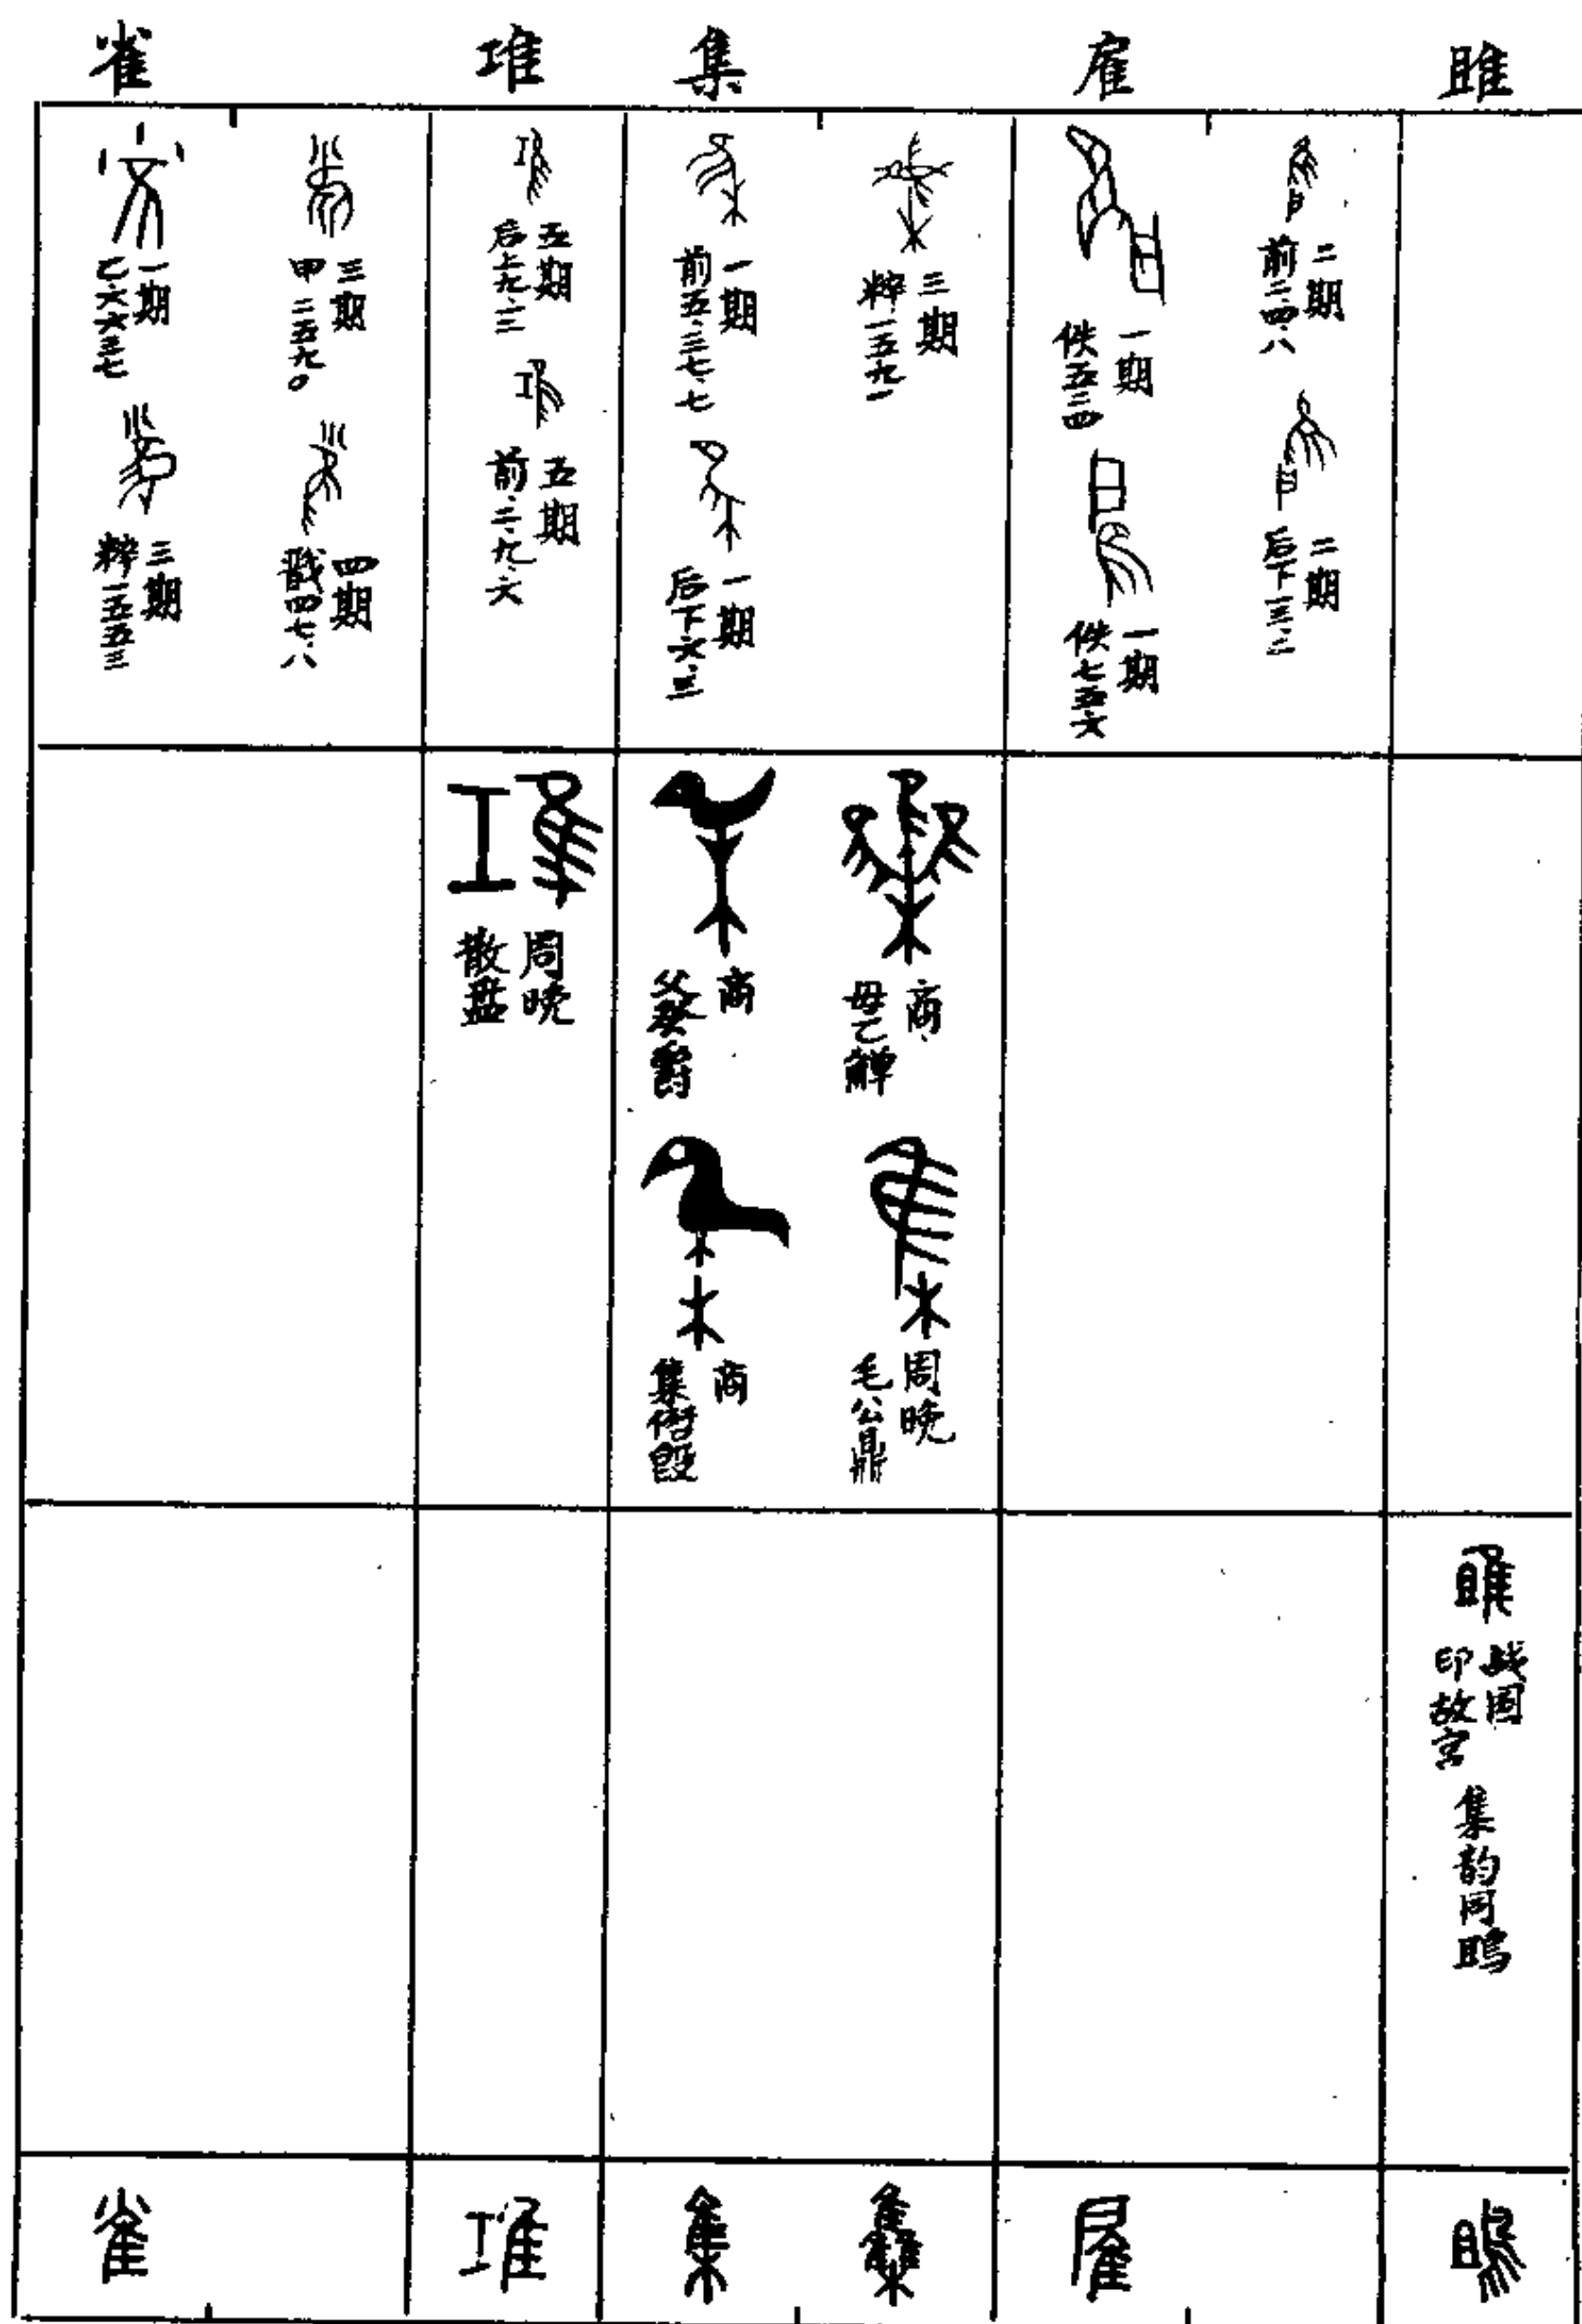 雀 琟 集 雇 雎
一期
乙六六三七
三期
粹一五五三
三期
甲二五九〇
四期
戬四七·八
五期
后上九·三
五期
前二·九·六
一期
前五·三七·七
一期
后下六·三
三期
粹一五九一
一期
佚五二四
一期
佚七五六
二期
前二·四·八
二期
周晚
散盘
商
父癸爵
商
母乙觶
商
周晚
毛公鼎
战国
印故宫
集韵同鴡
雀 琟 集 雧 雇 鴡